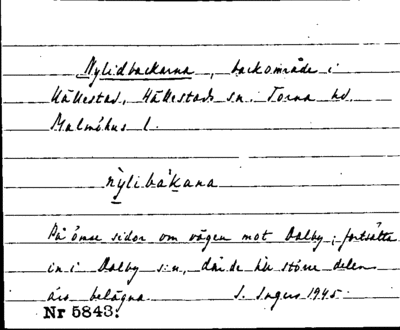 Nylidbackarna, backområde i
Hällestad, Hällestads sn. Torna hd
Malmöhus l.
nỳlibákana
På ömse sidor om vägen mot Dalby; fortsätta
in i Dalby s:n, där de till större delen
äro belägna. S. Ingers 1945.
Nr 5843.